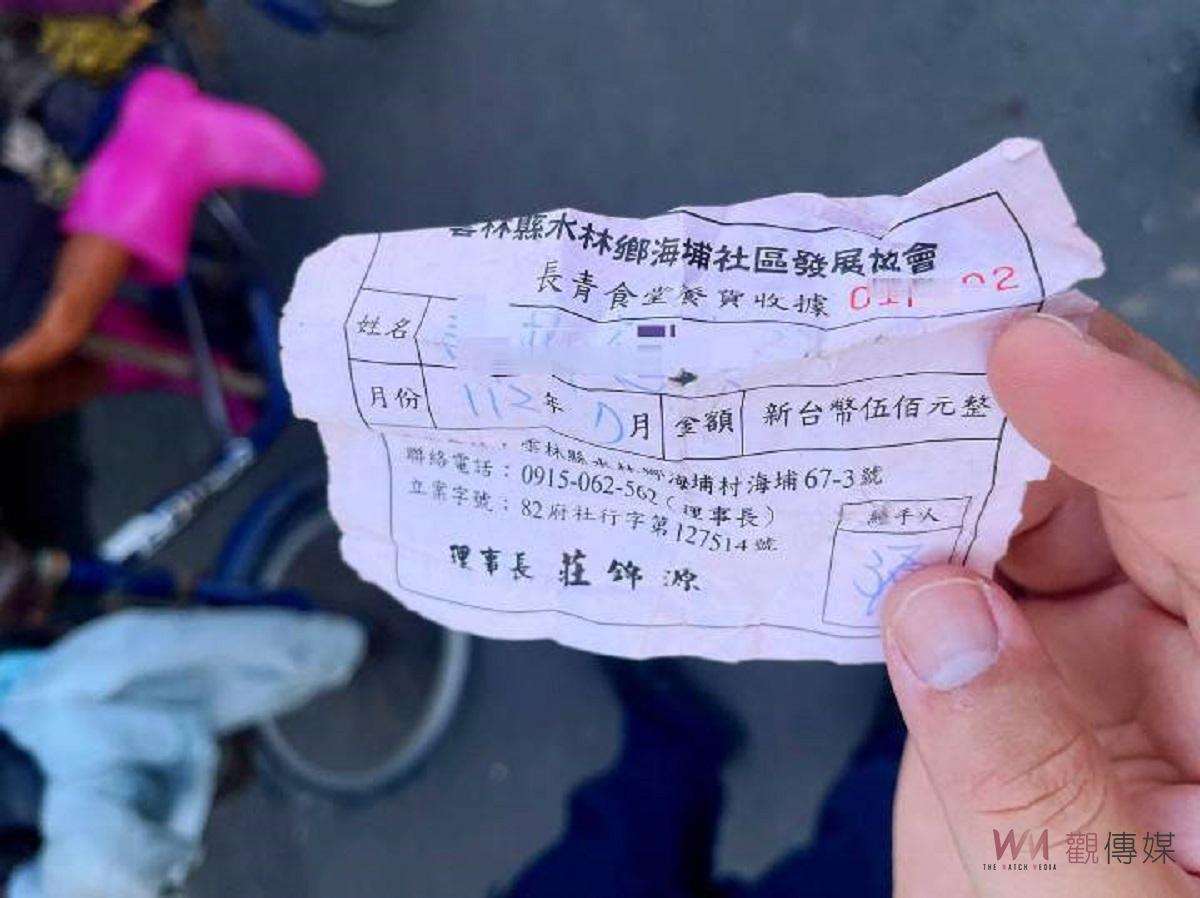 雲林縣水林鄉海埔社區發展協會
長青食堂餐費收據
姓名
月份 112年 月 金額 新台幣伍佰元整
雲林縣水林鄉海埔村海埔67-3號
聯絡電話：0915-062-562（理事長）
立案字號：82府社行字第127514號
經手人
理事長 莊錦源
WM 觀傳媒
THE WATCH MEDIA